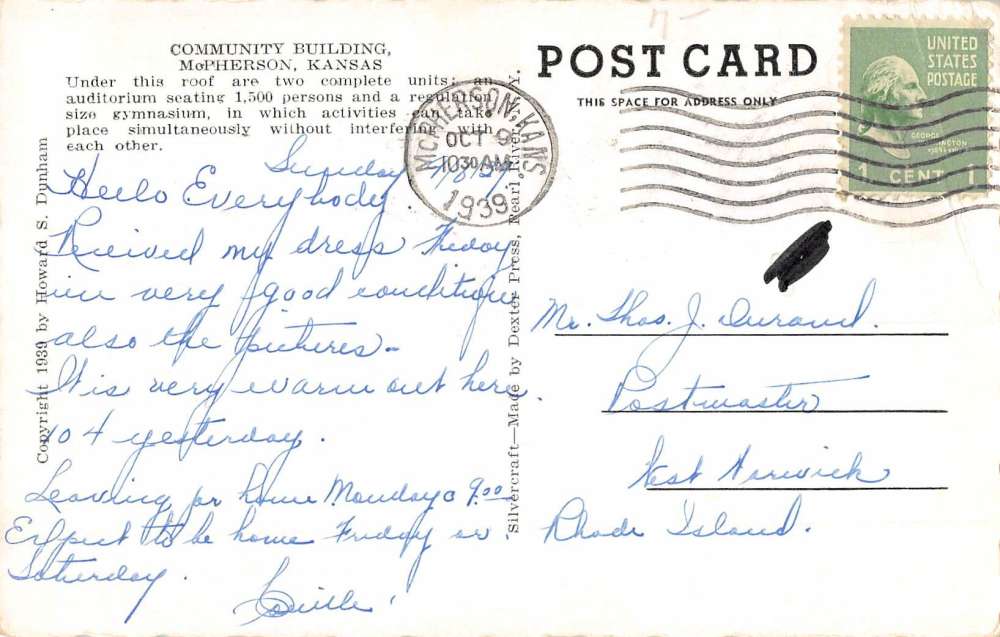 COMMUNITY BUILDING,
McPHERSON, KANSAS
Under this roof are two complete units: an
auditorium seating 1,500 persons and a regulation
size gymnasium, in which activities can take
place simultaneously without interfering with
each other.
Copyright 1939 by Howard S. Dunham
Sunday
Hello Everybody.
Received my dress
in very good condition
also the pictures-
It is very warm out here.
104 yesterday.
Leaving for home Monday 9:00
Expect to be home Friday or
Saturday.
Silvercraft—Made by Dexter Press, Pearl River, N. Y.
POST CARD
THIS SPACE FOR ADDRESS ONLY
McPHERSON, KANS.
OCT 9
10 30 AM
1939
UNITED
STATES
POSTAGE
GEORGE
WASHINGTON
1 CENT 1
Mr. Thos. J. Durand.
Postmaster
West Warwick
Rhode Island.